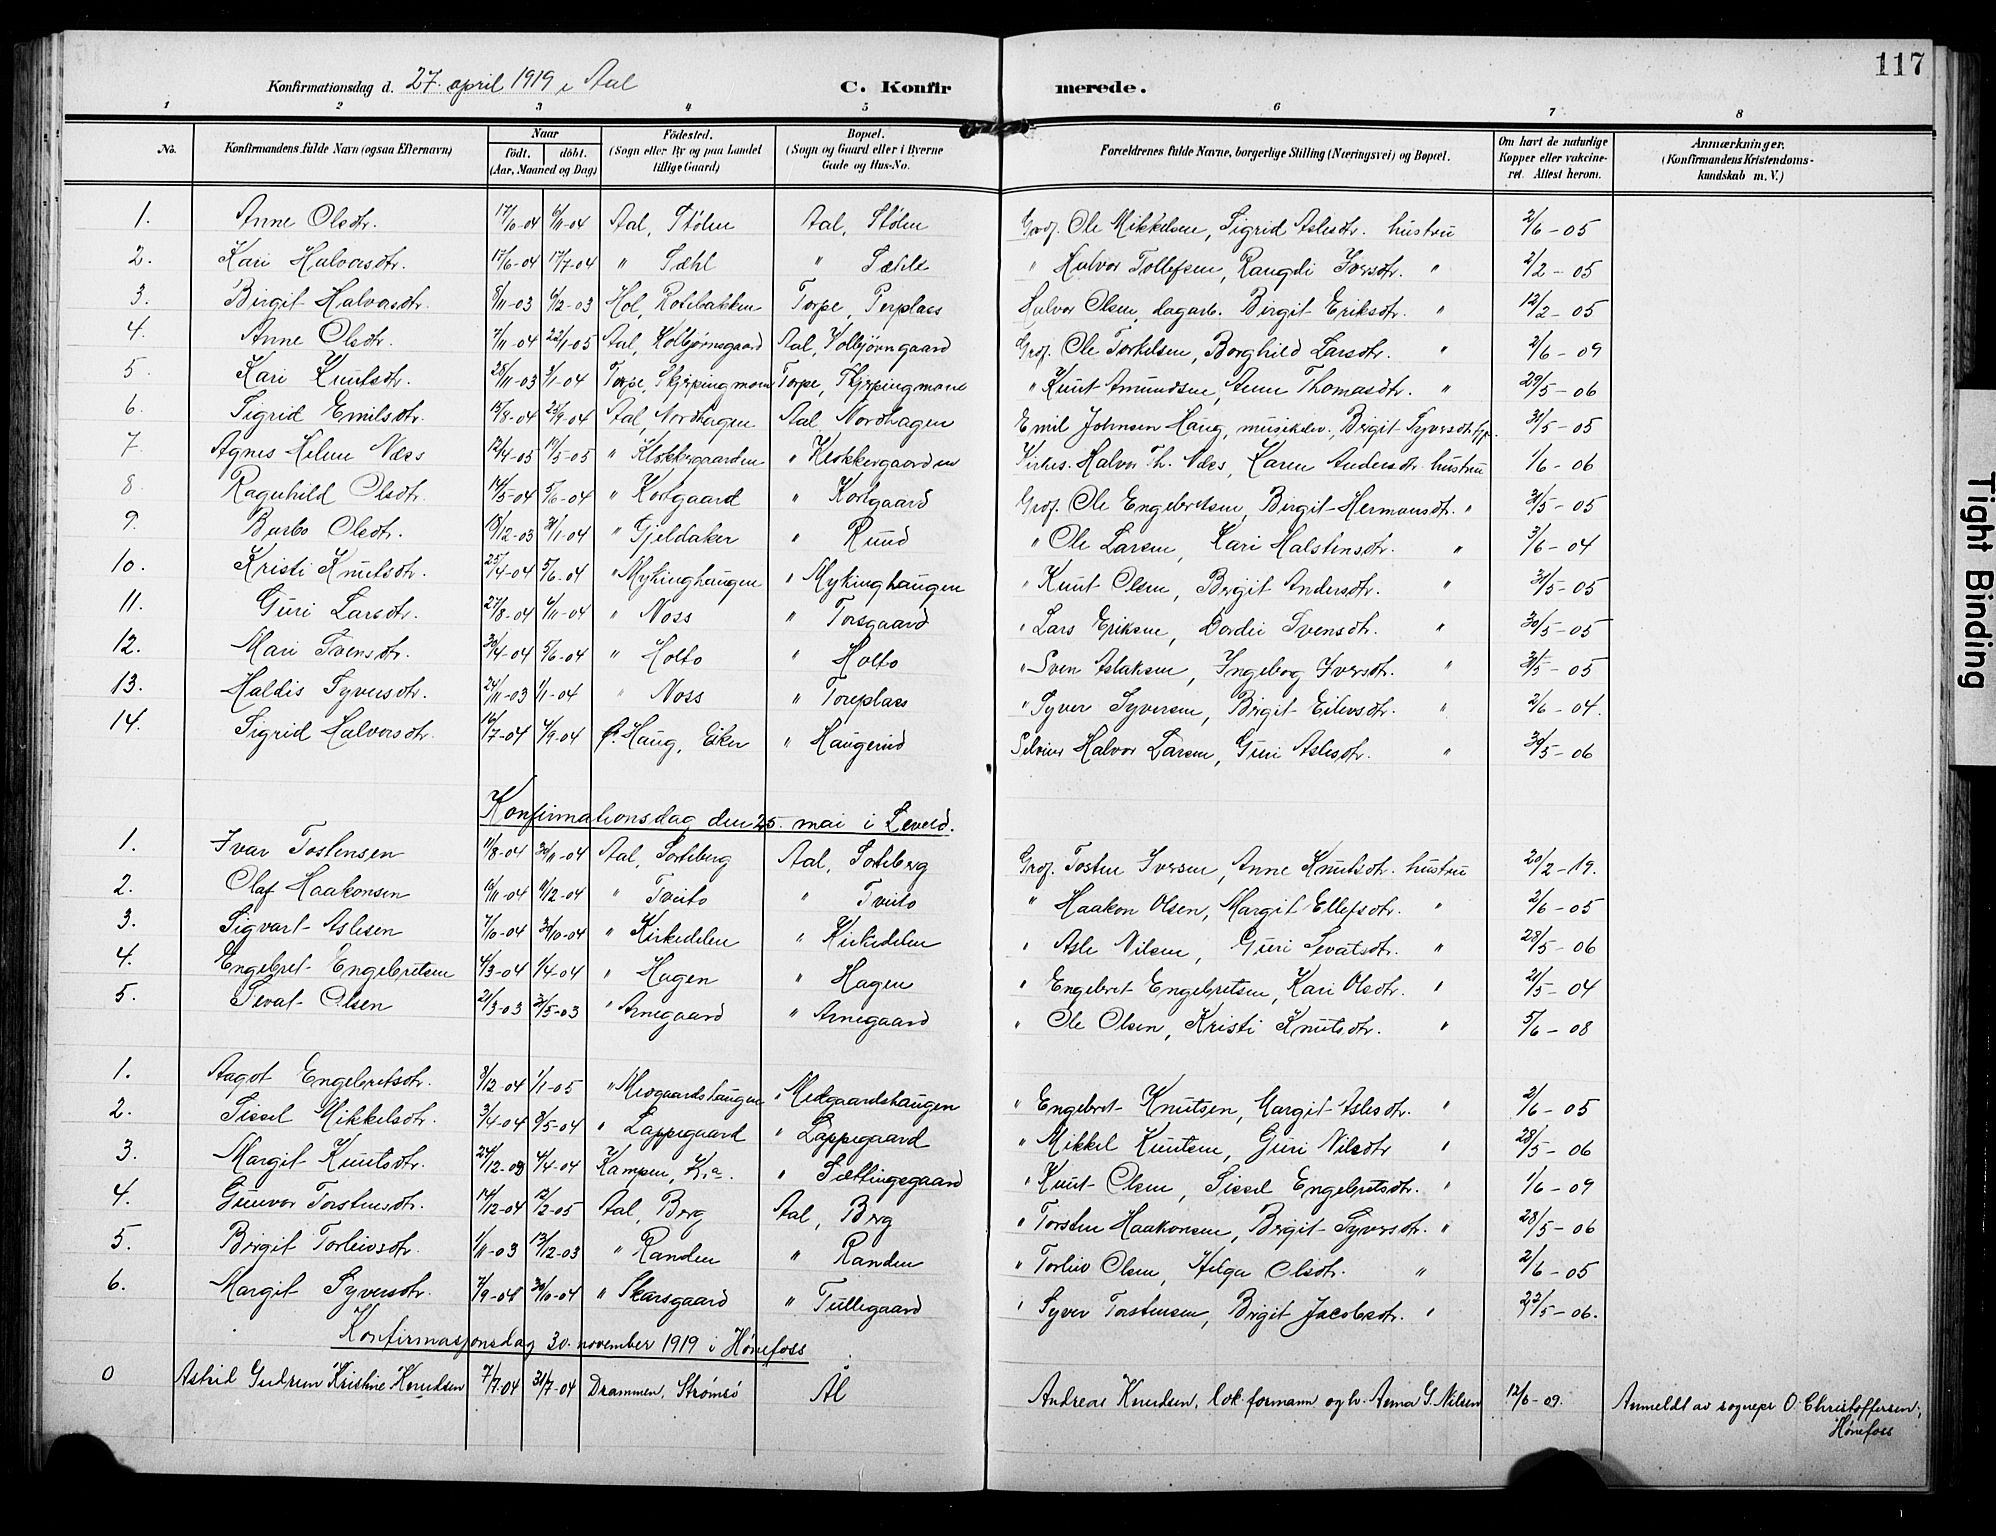 117
Konfirmationsdag d. 27. april 1919 i Aal C. Konfirmerede.
1 2 3 4 5 6 7 8
No. Konfirmandens fulde Navn (ogsaa Efternavn) Naar født. døbt. (Aar, Maaned og Dag) Födested. (Sogn eller By og paa Landet tillige Gaard) Bopæl. (Sogn og Gaard eller i Byerne Gade og Hus-No. Forældrenes fulde Navne, borgerlige Stilling (Næringsvei) og Bopæl. Om havt de naturlige Kopper eller vakcineret. Attest herom. Anmærkninger. (Konfirmandens Kristendomskundskab m. V.)
1. Anne Olsdtr. 17/6-04 6/11-04 Aal, Stölen Aal, Stölen Grdf. Ole Mikkelsen, Sigrid Aslesdtr. hustru 2/6-05
2. Kari Halvorsdtr. 17/6-04 17/7-04 " Sæhl " Sæhle " Halvor Tollefsen, Rangdi Iversdtr. " 2/2-05
3. Birgit Halvorsdtr. 8/11-03 6/12-03 Hol, Rotebakken Torpe, Perplass Halvor Olsen, dagarb. Birgit Eriksdtr. " 12/2-05
4. Anne Olsdtr. 7/11-04 22/1-05 Aal, Kolbjørnsgaard Aal, Kolbjörngaard Grdf. Ole Torkelsen, Borghild Larsdtr. " 2/6-09
5. Kari Knutsdtr. 28/11-03 3/1-04 Torpe Skjerpingmoen Torpe, Skjerpingmoen " Knut Amundsen, Anne Thomasdtr. " 29/5-06
6. Sigrid Emilsdtr. 15/8-04 25/9-04 Aal, Nordhagen Aal Nordhagen Emil Johnsen Haug, musikelev., Birgit Syversdtr. 31/5-05
7. Agnes Helene Næss 12/4-05 19/5-05 " Klokkergaarden " Klokkergaarden Kirkes. Halvor Th. Næss, Karen Andersdtr. hustru 1/6-06
8. Ragnhild Olsdtr. 14/5-04 5/6-04 " Kortgaard " Kortgaard Grdf. Ole Engebretsen, Birgit Hermansdtr. " 31/5-05
9. Barbo Olsdtr. 18/12-03 31/1-04 " Gjeldaker " Ruud " Ole Larsen, Kari Halstensdtr. " 3/6-04
10. Kristi Knutsdtr. 25/4-04 5/6-04 " Mykinghaugen " Mykinghaugen " Knut Olsen, Birgit Andersdtr. " 31/5-05
11. Guri Larsdtr. 27/8-04 6/11-04 " Noss " Torsgaard " Lars Eriksen, Dordei Svensdtr. " 30/5-05
12. Mari Svensdtr. 30/4-04 5/6-04 " Holto " Holto " Sven Aslaksen, Ingebog Iversdtr. " 31/5-05
13. Haldis Syversdtr. 24/11-03 1/1-04 " Noss " Toreplass " Syver Syversen, Birgit Eilevsdtr. " 2/6-04.
14. Sigrid Halvorsdtr. 16/7-04 4/9-04 Ø. Haug, Eiker " Haugerud Selveier Halvor Larsen, Guri Aslesdtr. " 30/5-06
Konfirmationsdag den 25. mai i Leveld.
1. Ivar Tostensen 11/8-04 30/11-04 Aal, Sorteberg Aal, Sorteberg Grdf. Tosten Iversen, Anne Knutsdtr. hustru 20/2-19.
2. Olaf Haakonsen 10/11-04 11/12-04 " Tveito " Tveito " Haakon Olsen, Margit Ellefsdtr. " 2/6-05
3. Sigvart Aslesen 7/10-04 30/10-04 " Kirkedelen " Kirkedelen " Asle Nilsen, Guri Sevatsdtr. " 28/5-06
4. Engebret Engebretsen 4/3-04 1/4-04 " Hagen " Hagen " Engebret Engebretsen, Kari Olsdtr. " 21/5-04
5. Sevat Olsen 21/3-03 31/5-03 " Arnegaard " Arnegaard " Ole Olsen, Kristi Knutsdtr. " 5/6-08
1. Aagot Engebretsdtr. 8/12-04 1/1-05 " Medgaardshaugen " Medgaardshaugen " Engebret Knutsen, Margit Aslesdtr. " 2/6-05
2. Sissel Mikkelsdtr. 3/4-04 8/5-04 " Lappegaard " Lappegaard " Mikkel Knutsen, Guri Nilsdtr " 28/5-06
3. Margit Knutsdtr. 24/12-03 4/4-04 Kampen, K.a. " Sættingsgaard " Knut Olsen, Sissel Engebretsdtr. " 1/6-09
4. Gunvor Torstensdtr. 14/12-04 12/2-05 Aal, Berg Aal, Berg " Torsten Haakonsen, Birgit Syversdtr. " 28/5-06
5. Birgit Torleivsdtr. 1/11-03 13/12-03 " Randen " Randen " Torleiv Olsen, Helga Olsdtr. " 2/6-05
6. Margit Syversdtr. 7/9-04 30/10-04 " Skarsgaard " Tullegaard " Syver Torstensen, Birgit Jacobsdtr. " 22/5-06.
Konfirmasjonsdag 30. november 1919 i Hønefoss
0 Astrid Gudrun Kristine Knudsen 7/7-04 31/7-04 Drammen, Strømsø Ål Andreas Knudsen, lok. formann og h. Anna G. Nilsen 12/6-09. Anmeldt av sognepr O. Christoffersen, Hønefoss
Tight Binding